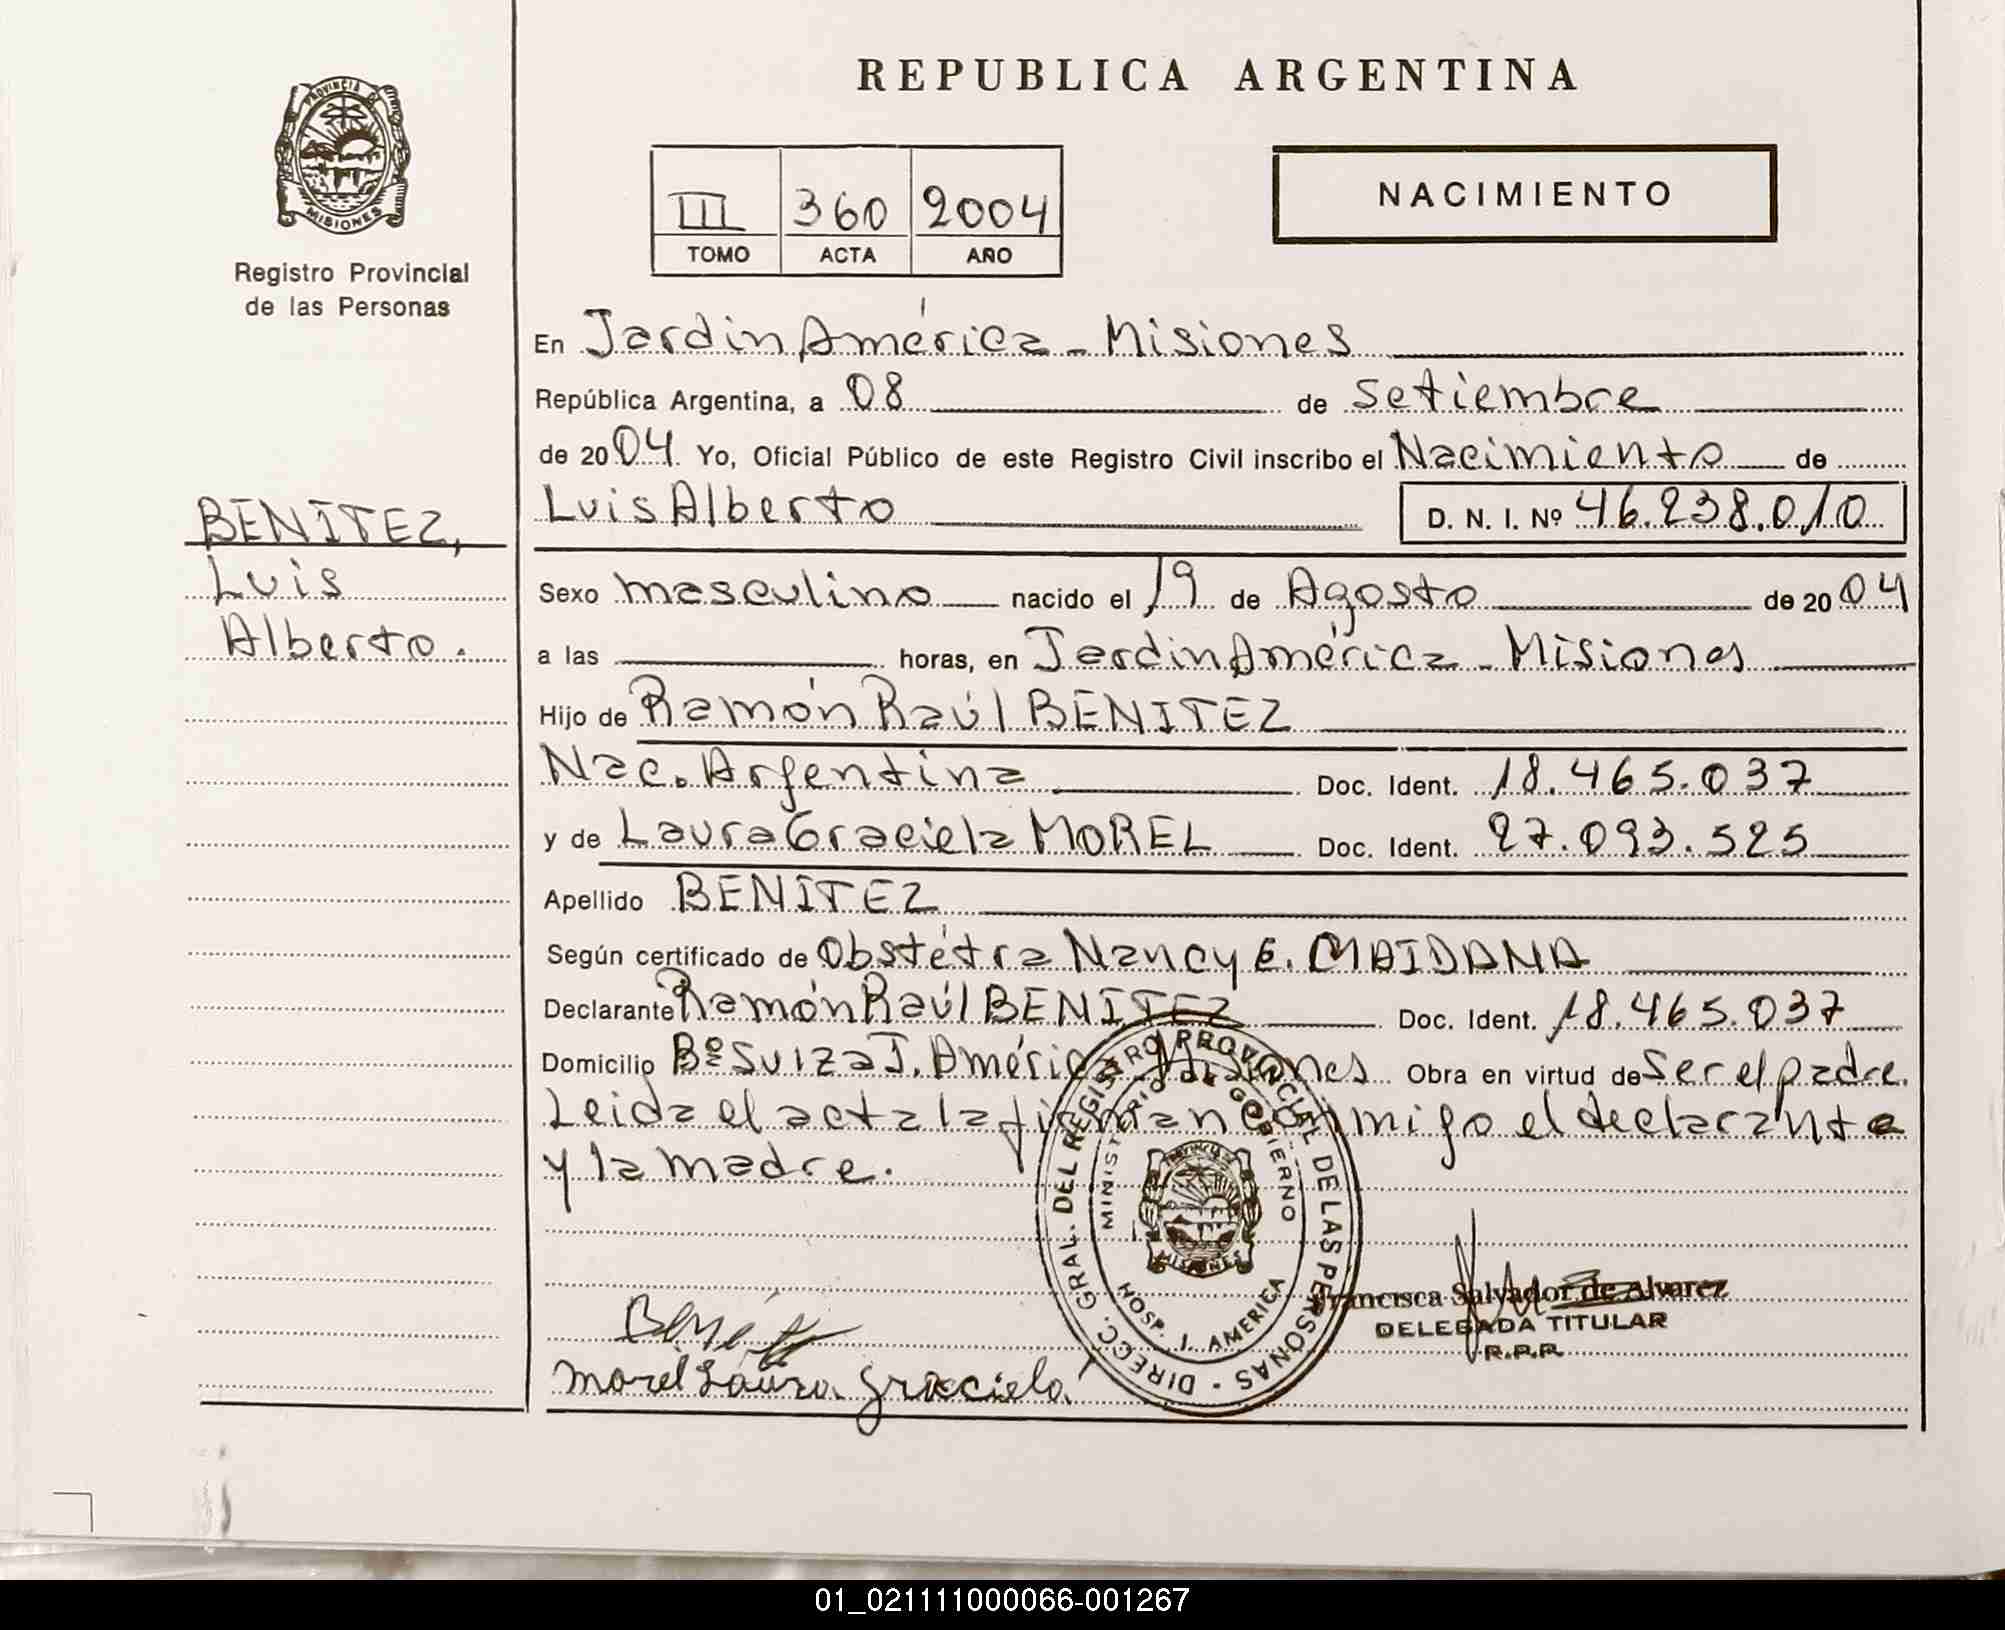 REPUBLICA ARGENTINA
PROVINCIA DE
MISIONES
Registro Provincial
de las Personas
III 360 2004
TOMO ACTA AÑO
NACIMIENTO
En Jardin América - Misiones
República Argentina, a 08 de Setiembre
de 2004. Yo, Oficial Público de este Registro Civil inscribo el Nacimiento de
Luis Alberto D. N. I. Nº 46.238.010
BENITEZ,
Luis
Alberto.
Sexo masculino nacido el 19 de Agosto de 2004
a las horas, en Jardin América - Misiones
Hijo de Ramón Raúl BENITEZ
Nac. Argentina Doc. Ident. 18.465.037
y de Laura Graciela MOREL Doc. Ident. 27.093.525
Apellido BENITEZ
Según certificado de Obstétra Nancy E. MAIDANA
Declarante Ramón Raúl BENITEZ Doc. Ident. 18.465.037
Domicilio Bº Suiza J. América Misiones Obra en virtud de Ser el padre.
Leida el acta la firman conmigo el declarante
y la madre.
DIRECC. GRAL. DEL REGISTRO PROVINCIAL DE LAS PERSONAS
MINISTERIO DE GOBIERNO
MISIONES
HOSP. J. AMERICA
Francisca Salvador de Alvarez
DELEGADA TITULAR
R.P.P.
Morel Laura Graciela
01_021111000066-001267